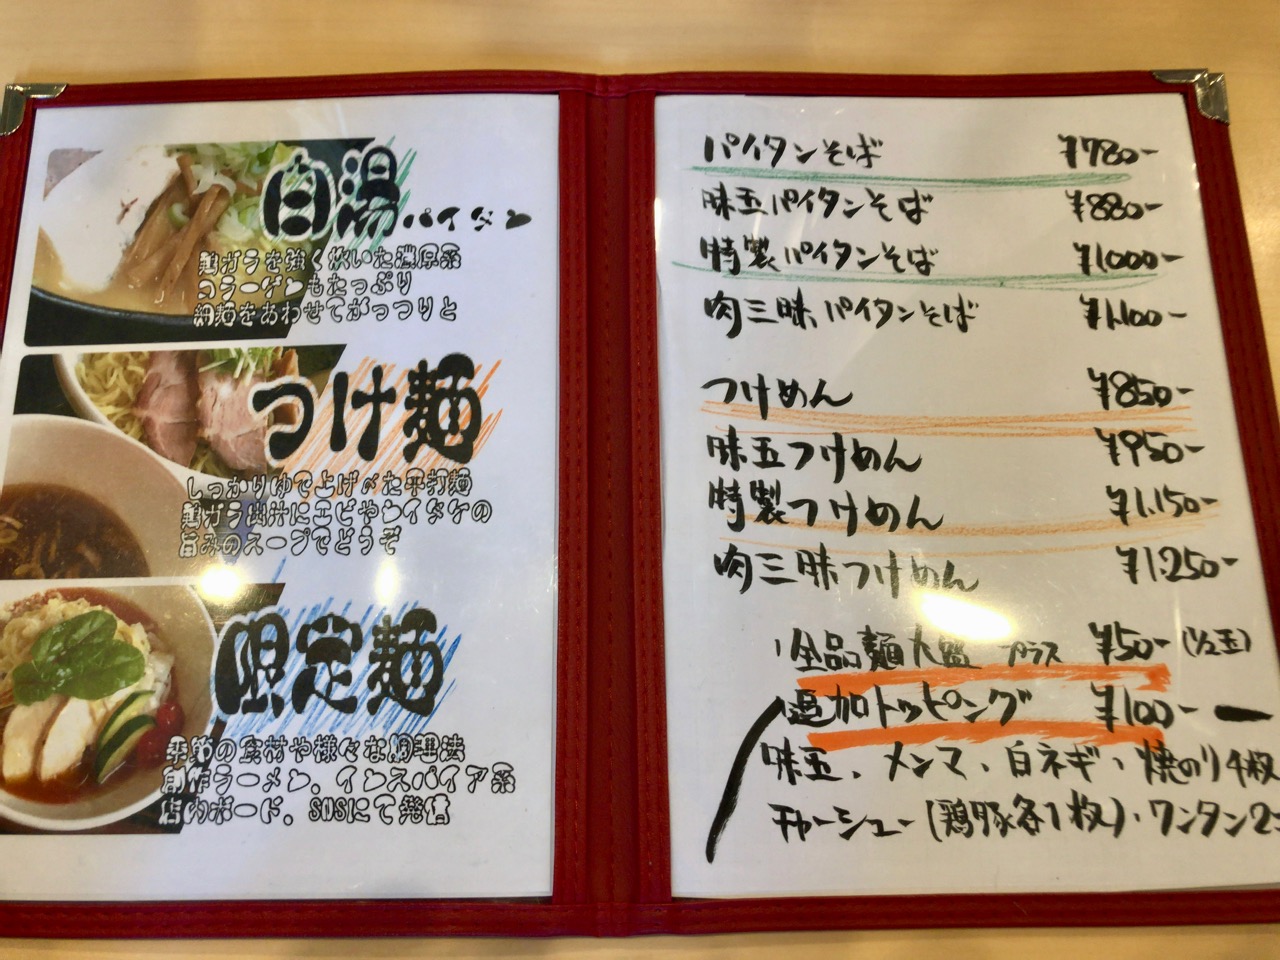 白湯パイタン
鶏ガラを強く炊いた濃厚系
コラーゲンもたっぷり
細麺をあわせてがっつりと
つけ麺
しっかりゆで上げた平打麺
鶏ガラ出汁にエビやシイタケの
旨みのスープでどうぞ
限定麺
季節の食材や様々な調理法
創作ラーメン、インスパイア系
店内ボード、SNSにて発信
パイタンそば ¥780-
味玉パイタンそば ¥880-
特製パイタンそば ¥1000-
肉三昧パイタンそば ¥1,100-
つけめん ¥850-
味玉つけめん ¥950-
特製つけめん ¥1,150-
肉三昧つけめん ¥1,250-
全品麺大盛 プラス ¥50-(1/2玉)
追加トッピング ¥100-
味玉、メンマ、白ネギ、焼のり4枚
チャーシュー(鶏豚各1枚)、ワンタン2